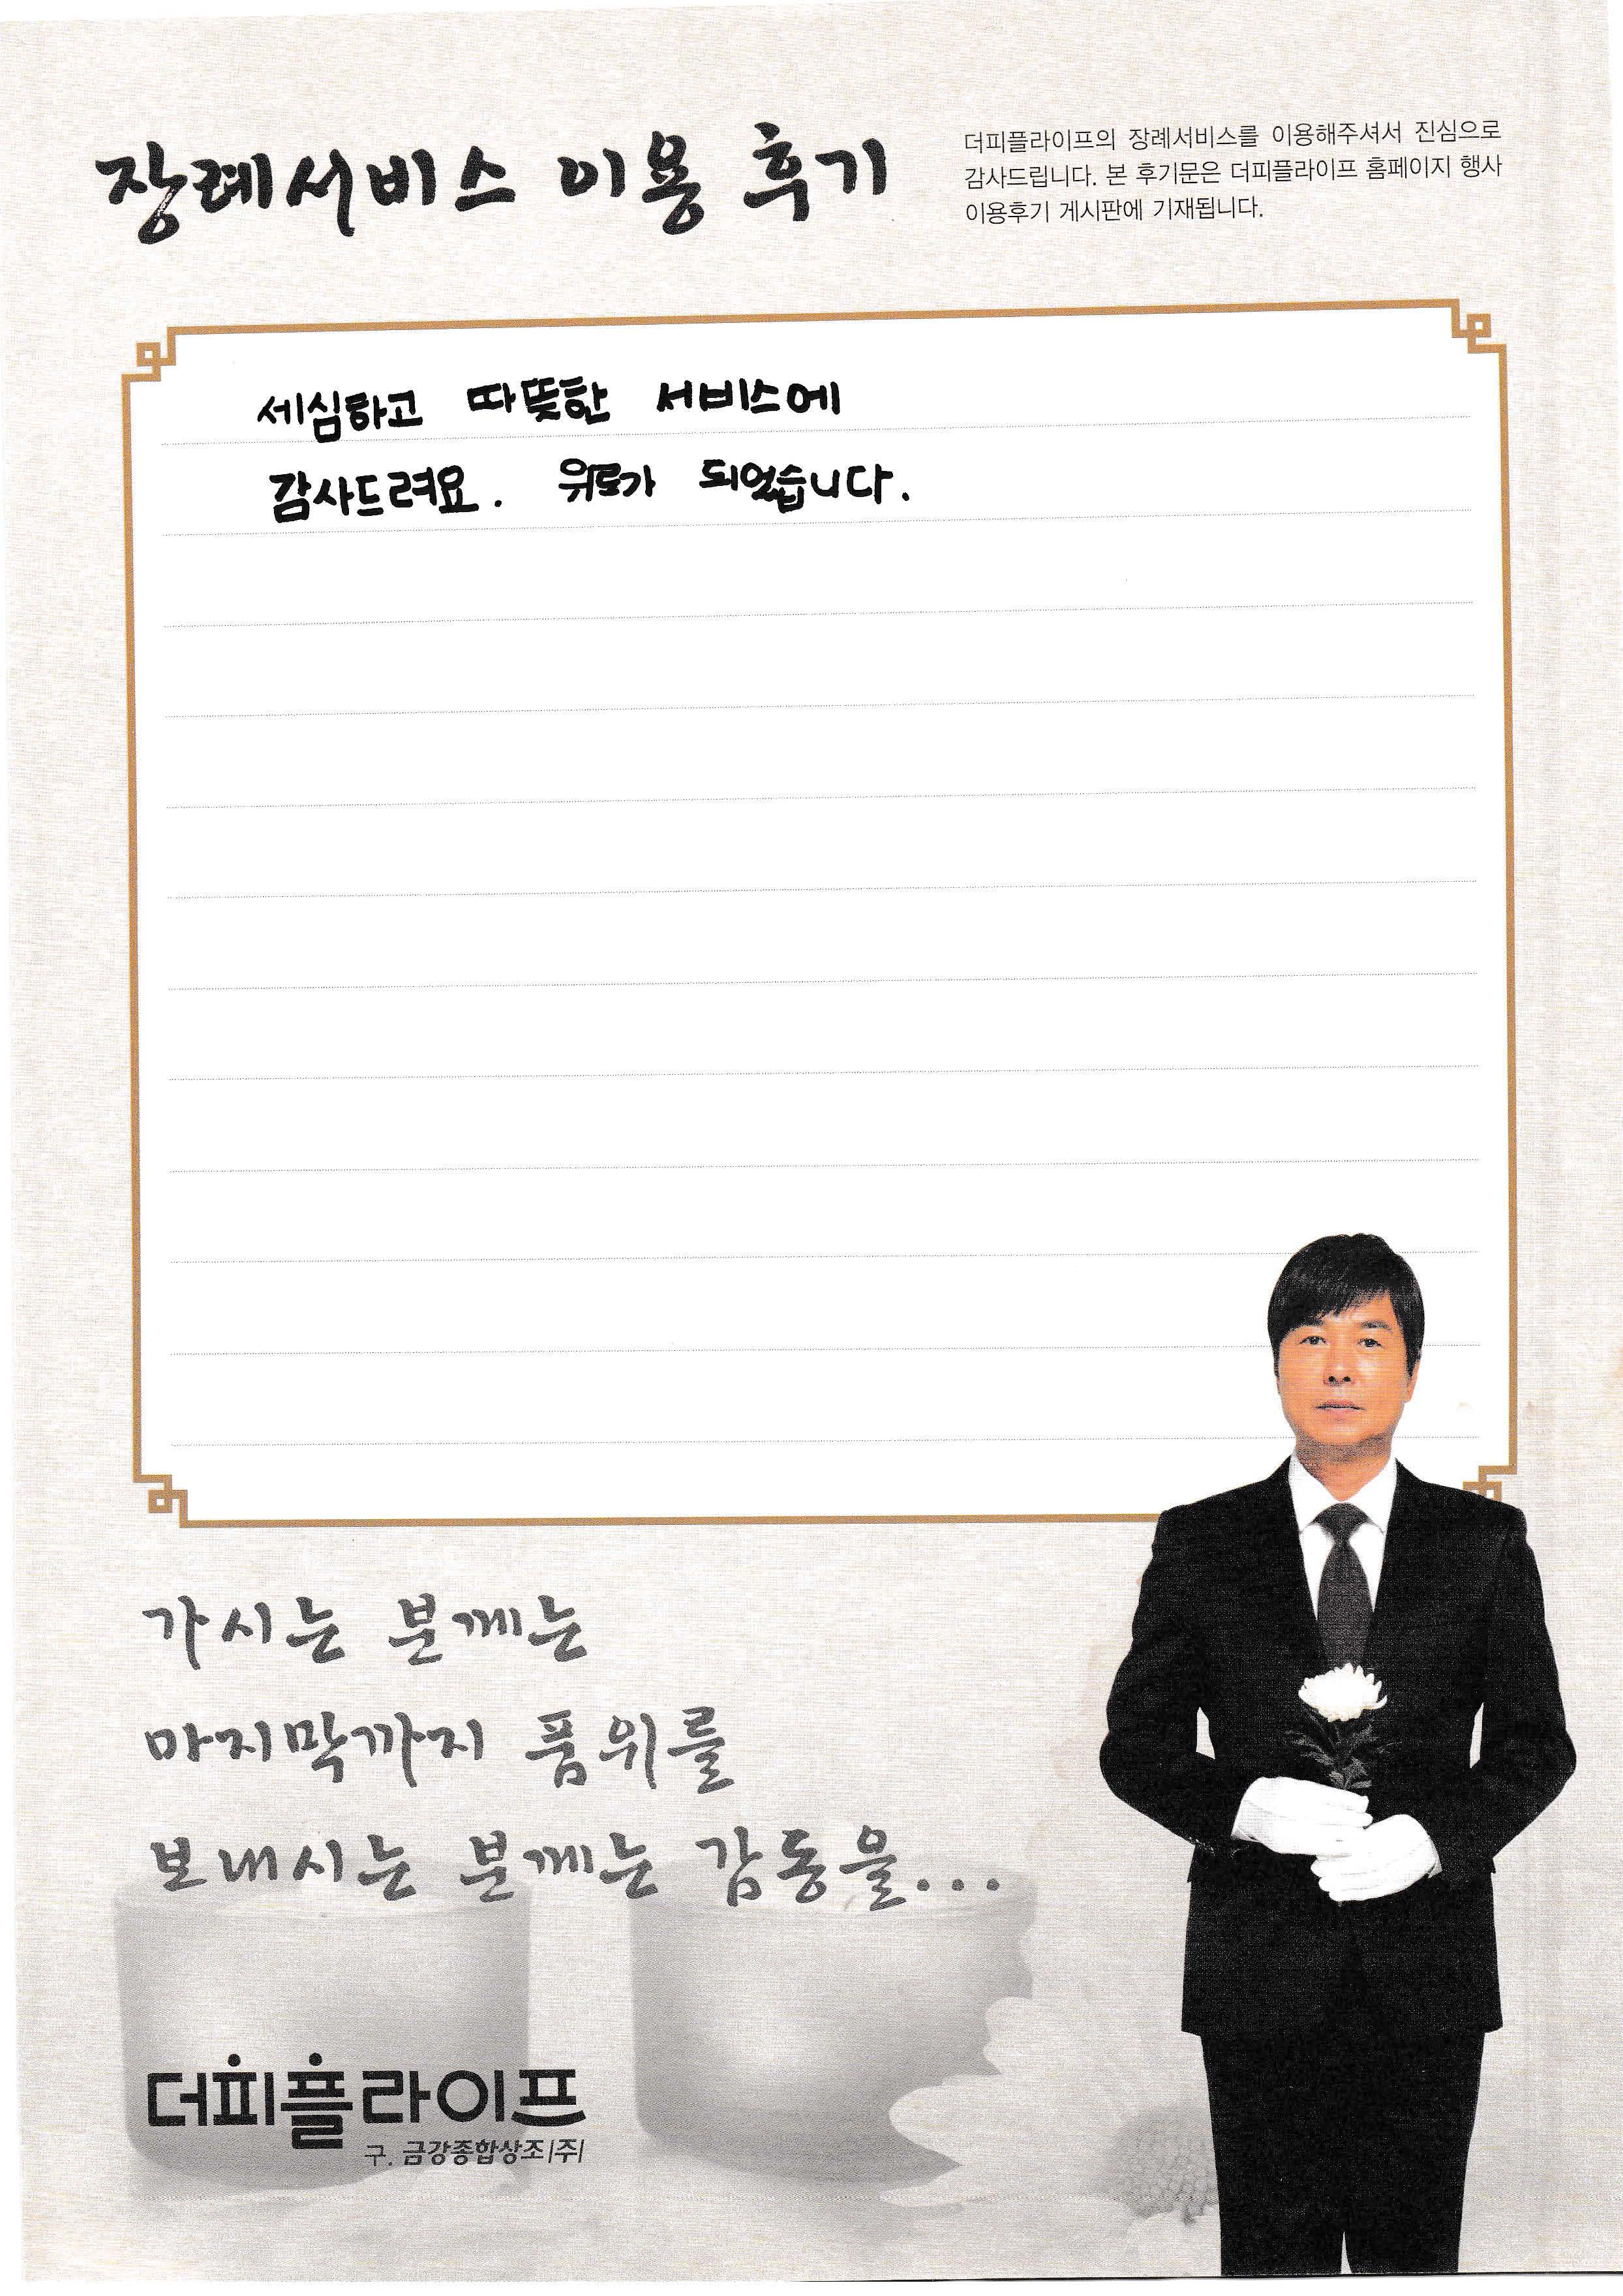 장례서비스 이용 후기
더피플라이프의 장례서비스를 이용해주셔서 진심으로
감사드립니다. 본 후기문은 더피플라이프 홈페이지 행사
이용후기 게시판에 기재됩니다.
세심하고 따뜻한 서비스에
감사드려요. 위로가 되었습니다.
가시는 분께는
마지막까지 품위를
보내시는 분께는 감동을...
더피플라이프
구. 금강종합상조|주|